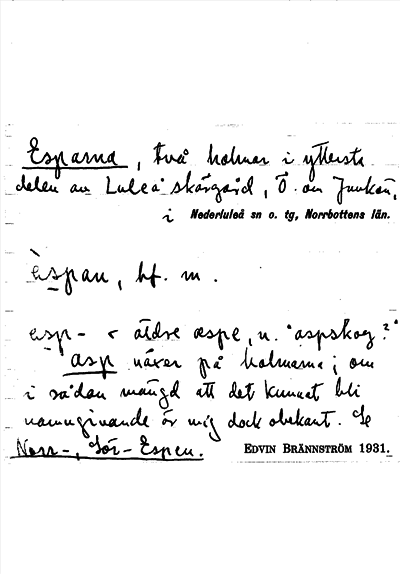 Esparna, två holmar i yttersta
delen av Luleå skärgård, Ö. om Junkön,
i Nederluleå sn o. tg, Norrbottens län.
èspan, bf. m.
esp- < äldre æspe, n. "aspskog?"
asp växer på holmarna; om
i sådan mängd att det kunnat bli
namngivande är mig dock obekant. Se
Norr-, Sör-Espen. EDVIN BRÄNNSTRÖM 1931.